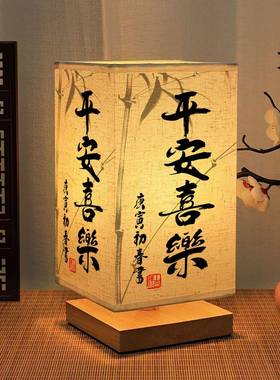 平安喜樂
庚寅初春書
平安喜樂
庚寅初春書